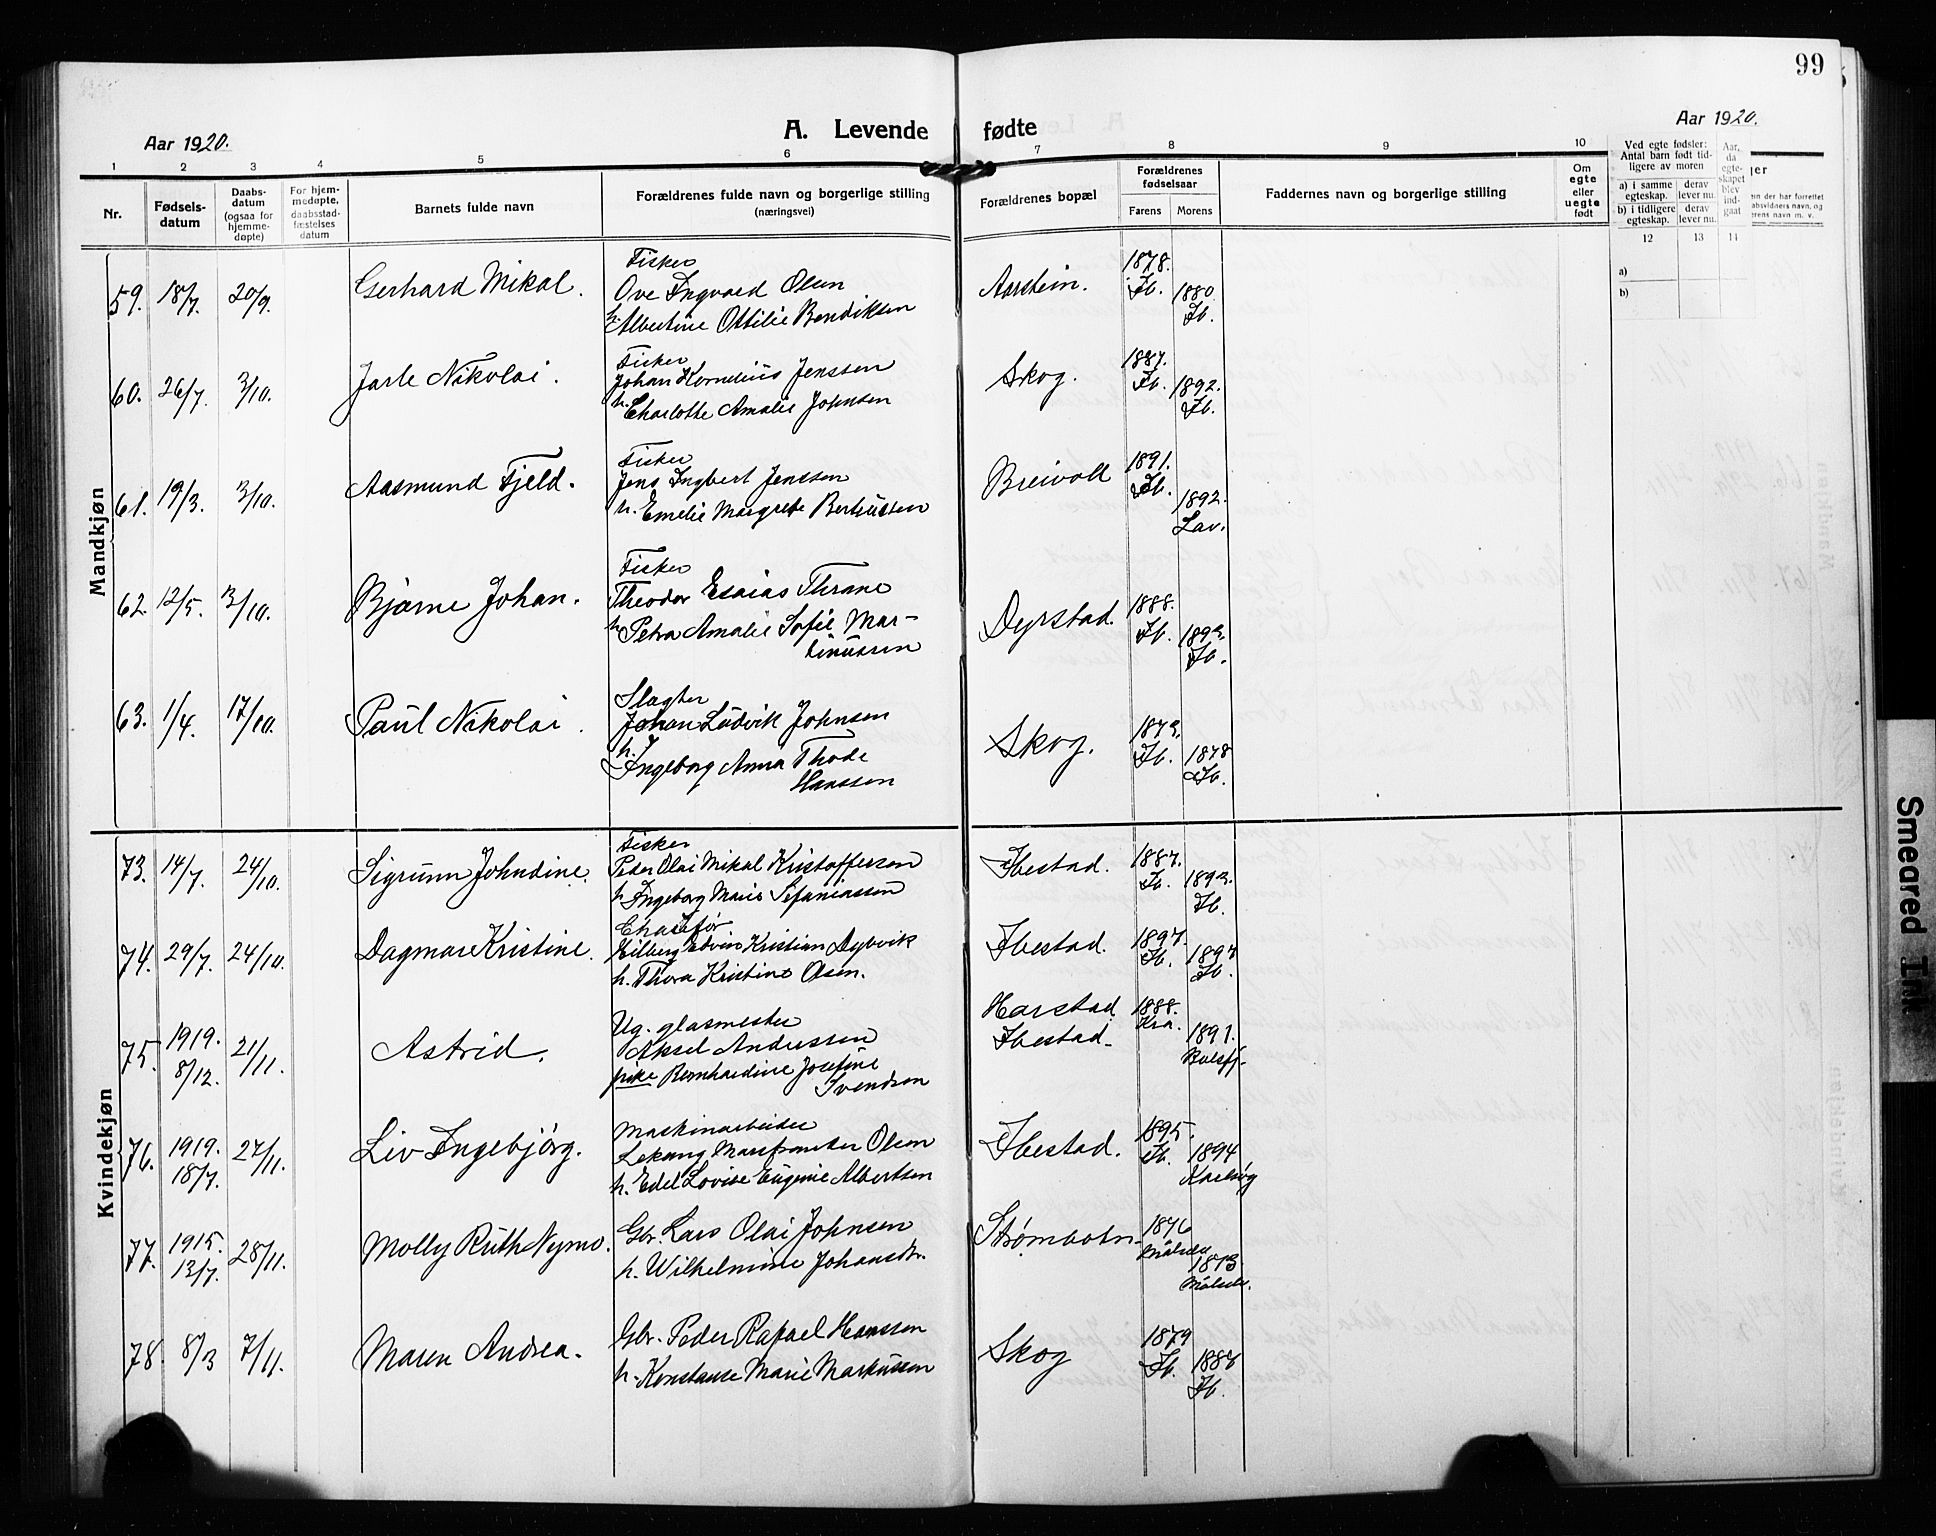 99
A. Levende fødte
Aar 1920.
Aar 1920.
1 2 3 4 5 6 7 8 9 10
Nr.
Fødsels-
datum
Daabs-
datum
(ogsaa for
hjemme-
døpte)
For hjem-
medøpte,
daabsstad-
fæstelses
datum
Barnets fulde navn
Forældrenes fulde navn og borgerlige stilling
(næringsvei)
Forældrenes bopæl
Forældrenes
fødselsaar
Farens Morens
Faddernes navn og borgerlige stilling
Om
egte
eller
uegte
født
Ved egte fødsler:
Antal barn født tid-
ligere av moren
a) i samme
egteskap.
derav
lever nu.
b) i tidligere
egteskap.
derav
lever nu.
Aar,
da
egte-
skapet
blev
ind-
gaat
12 13 14
a)
b)
Mandkjøn
59. 18/7. 20/9. Gerhard Mikal.
Fisker
Ove Ingvard Olsen
h. Albertine Ottilie Bendiksen
Aarstein. 1878. Ib. 1880 Ib.
60. 26/7. 3/10. Jarle Nikolai.
Fisker
Johan Kornelius Jenssen
h. Charlotte Amalie Johnsen
Skog. 1887. Ib. 1892. Ib.
61. 19/3. 3/10. Aasmund Fjeld.
Fisker
Jens Ingbert Jenssen
h. Emelie Margrete Berteussen
Breivoll 1891. Ib. 1892. Lav.
62. 12/5. 3/10. Bjarne Johan.
Fisker
Theodor Esaias Thrane
h. Petra Amalie Sofie Mar-
tinussen
Dyrstad. 1888. Ib. Ib.
63. 1/4. 17/10. Paul Nikolai.
Slagter
Johan Ludvik Johnsen
h. Ingeborg Anna Thode
Hanssen
Skog. Ib. 1878 Ib.
Kvindekjøn
73. 14/7. 24/10. Sigrunn Johndine.
Fisker
Peder Olai Mikal Kristoffersen
h. Ingeborg Marie Sefaniassen
Ibestad. 1887. Ib. Ib.
74. 29/7. 24/10. Dagmar Kristine.
Chauffør
Eilberg Edvin Kristian Dybvik
h. Thora Kristine Olsen.
Ibestad. 1897. Ib. 1897 Ib.
75. 1919. 8/12. 21/11. Astrid.
Ug. glasmester
Aksel Andersen
pike Bernhardine Josefine
Svendsen
Harstad 1888. Kra.
Ibestad. 1891. Balsfj.
76. 1919. 18/7. 27/11. Liv Ingebjørg.
Maskinarbeider
Lekang Olsen
h. Edel Lovise Eugenie Albertsen
Ibestad. 1895. Ib. 1894 Karlsøy
77. 1915. 13/7. 28/11. Molly Ruth Nymo.
Gbr. Lars Olai Johnsen
h. Wilhelmine Johansdtr.
Strømbotn 1876 Målselv 1873 Målselv.
78. 8/3 7/11. Maren Andrea.
Gbr. Peder Rafael Hanssen
h. Konstanse Marie Markussen
Skog 1879 Ib. 1887 Ib.
Smeared Ink